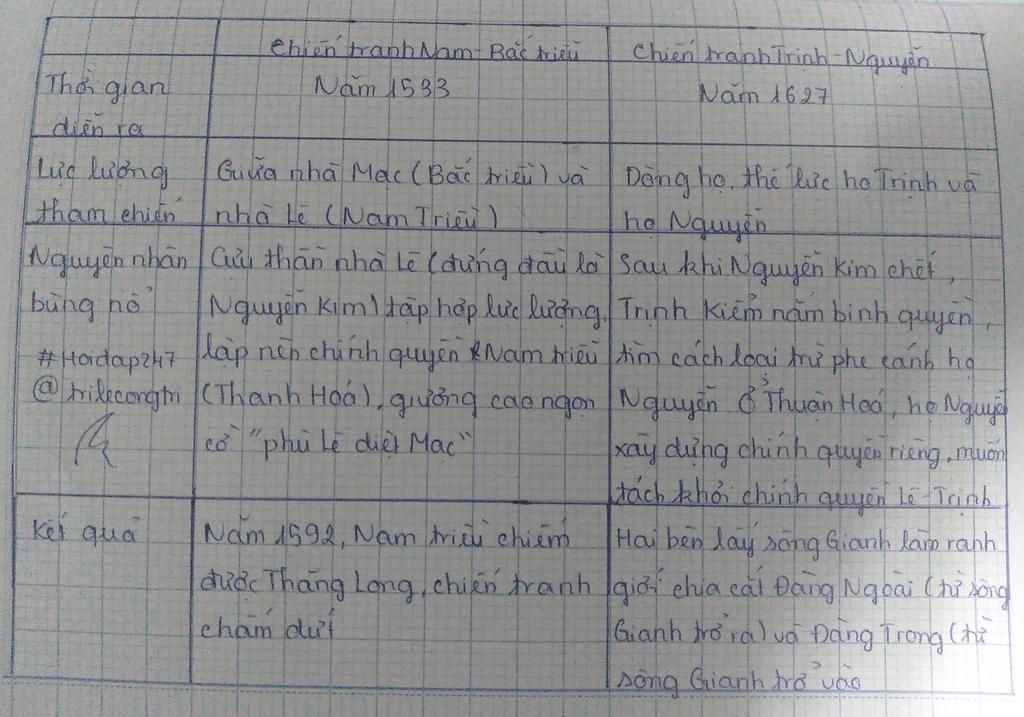 Chiến tranh Nam-Bắc triều
Chiến tranh Trịnh-Nguyễn
Thời gian
diễn ra
Năm 1533
Năm 1627
Lực lượng
tham chiến
Giữa nhà Mạc (Bắc triều) và
nhà Lê (Nam Triều)
Dòng họ, thế lực họ Trịnh và
họ Nguyễn
Nguyên nhân
bùng nổ
#Hoidap247
@trilecongtri
Cựu thần nhà Lê (đứng đầu là
Nguyễn Kim) tập hợp lực lượng,
lập nên chính quyền Nam triều
(Thanh Hoá), giương cao ngọn
cờ "phù Lê diệt Mạc"
Sau khi Nguyễn Kim chết,
Trịnh Kiểm nắm binh quyền,
tìm cách loại trừ phe cánh họ
Nguyễn. Ở Thuận Hoá, họ Nguyễ
xây dựng chính quyền riêng, muốn
tách khỏi chính quyền Lê-Trịnh
Kết quả
Năm 1592, Nam triều chiếm
được Thăng Long, chiến tranh
chấm dứt
Hai bên lấy sông Gianh làm ranh
giới chia cắt Đàng Ngoài (từ sông
Gianh trở ra) và Đàng Trong (từ
sông Gianh trở vào